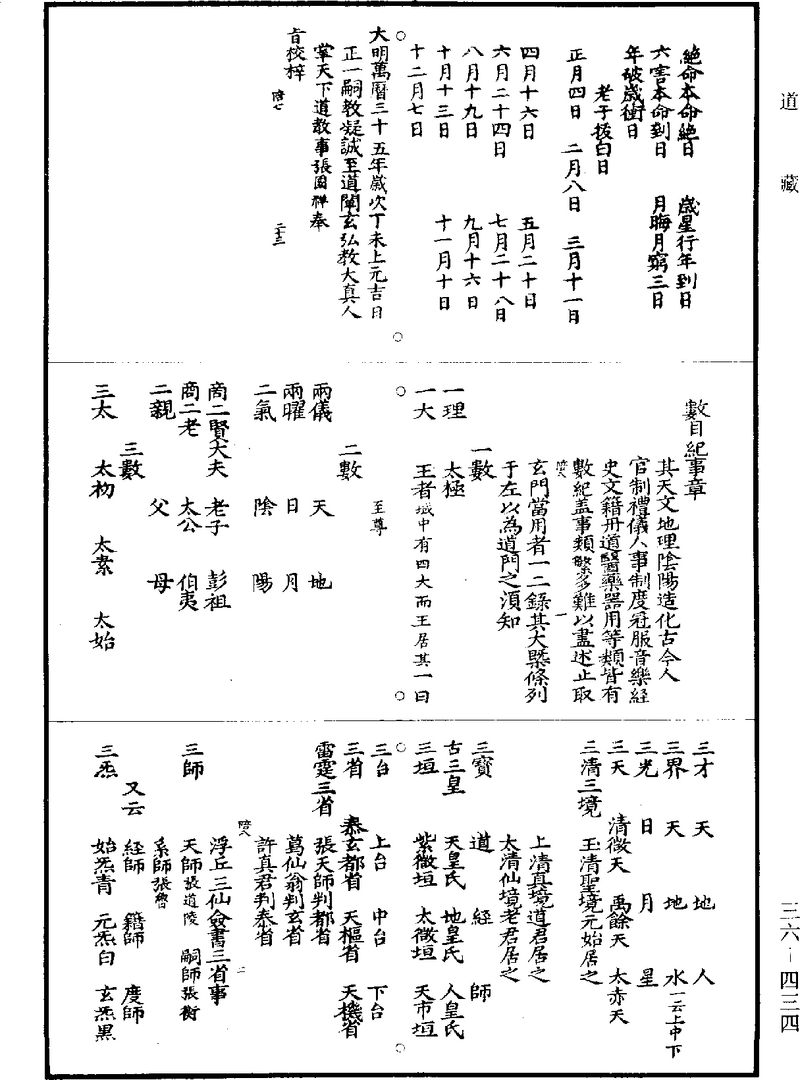 道藏
絕命本命絕日　歲星行年到日
六害本命到日　月晦月窮三日
年破歲衝日
老子拔白日
正月四日　二月八日　三月十一日
四月十六日　五月二十日
六月二十四日　七月二十八日
八月十九日　九月十六日
十月十三日　十一月十日
十二月七日
大明萬曆三十五年歲次丁未上元吉日
正一嗣教凝誠至道闡玄弘教大真人
掌天下道教事張國祥奉
旨校梓
數目紀事章
其天文地理陰陽造化古今人
官制禮儀人事制度冠服音樂經
史文籍丹道醫藥器用等類皆有
數紀蓋事類繁多難以盡述止取
玄門當用者一二錄其大槩條列
于左以為道門之須知
一數
一理　太極
一大　王者域中有四大而王居其一曰
至尊
二數
兩儀　天　地
兩曜　日　月
二氣　陰　陽
商二賢大夫　老子　彭祖
商二老　太公　伯夷
二親　父　母
三數
三太　太初　太素　太始
三才　天　地　人
三界　天　地　水一云上中下
三光　日　月　星
三天　清微天　禹餘天　太赤天
三清三境　玉清聖境元始居之
上清真境道君居之
太清仙境老君居之
三寶　道　經　師
古三皇　天皇氏　地皇氏　人皇氏
三垣　紫微垣　太微垣　天市垣
三台　上台　中台　下台
三省　泰玄都省　天樞省　天機省
雷霆三省　張天師判都省
葛仙翁判玄省
許真君判泰省
浮丘三仙僉書三省事
三師　天師張道陵　嗣師張衡
系師張魯
又云　經師　籍師　度師
三炁　始炁青　元炁白　玄炁黑
三六－四三四